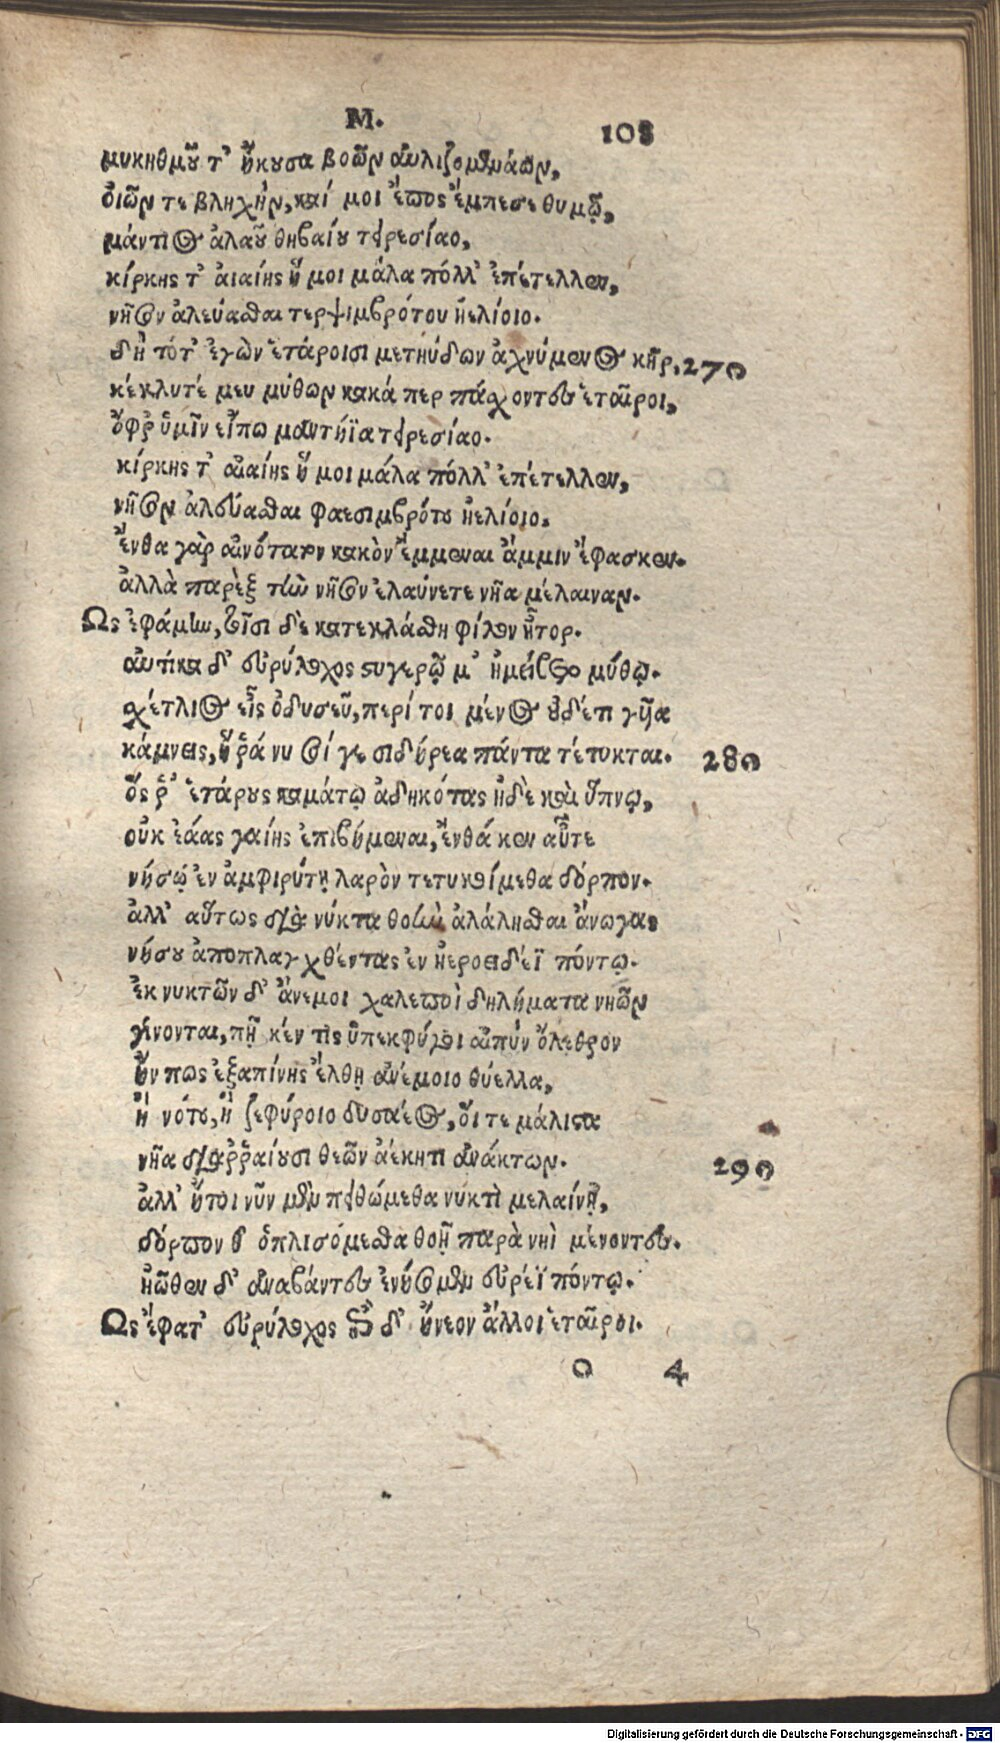 Μ. 108
μυκηθμοῦ τ' ἤκουσα βοῶν αὐλιζομενάων,
ὀιῶν τε βληχὴν, καί μοι ἔπος ἔμπεσε θυμῷ,
μάντιος ἀλαοῦ θηβαίου τειρεσίαο,
κίρκης τ' ἀιαίης ἥ μοι μάλα πόλλ' ἐπέτελλεν,
νῆσον ἀλεύασθαι τερψιμβρότου ἠελίοιο.
δὴ τότ' ἐγὼν ἑτάροισι μετηύδων ἀχνύμενος κῆρ. 270
κέκλυτέ μευ μύθων κακά περ πάσχοντες ἑταῖροι,
ὄφρ' ὑμῖν εἴπω μαντήϊα τειρεσίαο.
κίρκης τ' αἰαίης ἥ μοι μάλα πόλλ' ἐπέτελλεν,
νῆσον ἀλεύασθαι φαεσιμβρότου ἠελίοιο.
ἔνθα γὰρ αἰνότατον κακὸν ἔμμεναι ἄμμιν ἔφασκεν.
ἀλλὰ παρὲξ τὴν νῆσον ἐλαύνετε νῆα μέλαιναν.
Ως ἐφάμην, τοῖσι δὲ κατεκλάσθη φίλον ἦτορ.
αὐτίκα δ' εὐρύλοχος στυγερῷ μ' ἠμείβετο μύθῳ.
σχέτλιος εἶς ὀδυσεῦ, περί τοι μένος οὐδέτι γυῖα
κάμνεις, ἦ ῥά νυ σοί γε σιδήρεα πάντα τέτυκται. 280
ὅς ῥ' ἑτάρους καμάτῳ ἀδηκότας ἠδὲ καὶ ὕπνῳ,
οὐκ ἐάας γαίης ἐπιβήμεναι, ἔνθά κεν αὖτε
νήσῳ ἐν ἀμφιρύτῃ λαρὸν τετυκοίμεθα δόρπον.
ἀλλ' αὔτως διὰ νύκτα θοὴν ἀλάλησθαι ἄνωγας
νήσου ἀποπλαγχθέντας ἐν ἠεροειδέϊ πόντῳ.
ἐκ νυκτῶν δ' ἄνεμοι χαλεποὶ δηλήματα νηῶν
γίνονται, πῇ κέν τις ὑπεκφύγοι αἰπὺν ὄλεθρον
ἤν πως ἐξαπίνης ἔλθῃ ἀνέμοιο θύελλα,
ἢ νότου, ἢ ζεφύροιο δυσαέος, οἵ τε μάλιστα
νῆα διαῤῥαίουσι θεῶν ἀέκητι ἀνάκτων. 290
ἀλλ' ἤτοι νῦν μὲν πειθώμεθα νυκτὶ μελαίνῃ,
δόρπον θ' ὁπλισόμεσθα θοῇ παρὰ νηὶ μένοντες.
ἠῶθεν δ' ἀναβάντες ἐνήσομεν εὐρέϊ πόντῳ.
Ως ἔφατ' εὐρύλοχος ἐπὶ δ' ᾔνεον ἄλλοι ἑταῖροι.
O 4
Digitalisierung gefördert durch die Deutsche Forschungsgemeinschaft - DFG